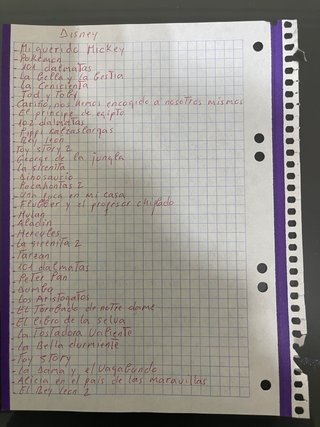 Disney
- Mi querido Mickey
- Pokemon
- 101 dalmatas
- La Bella y la Bestia
- La Cenicienta
- Tod y Toby
- Cariño, nos hemos encogido a nosotros mismos
- El principe de egipto
- 102 dalmatas
- Pippi Kalzaslargas
- Rey leon
- Toy story 2
- George de la jungla
- La sirenita
- Dinosaurio
- Pocahontas 2
- Una loca en mi casa
- Flubber y el profesor chiflado
- Mulan
- Aladin
- Hercules
- La sirenita 2
- Tarzan
- 101 dalmatas
- Peter Pan
- Dumbo
- Los Aristogatos
- El Jorobado de notre dame
- El libro de la selva
- La Tostadora Valiente
- La Bella durmiente
- Toy story
- La Dama y el Vagabundo
- Alicia en el pais de las maravillas
- El Rey leon 2